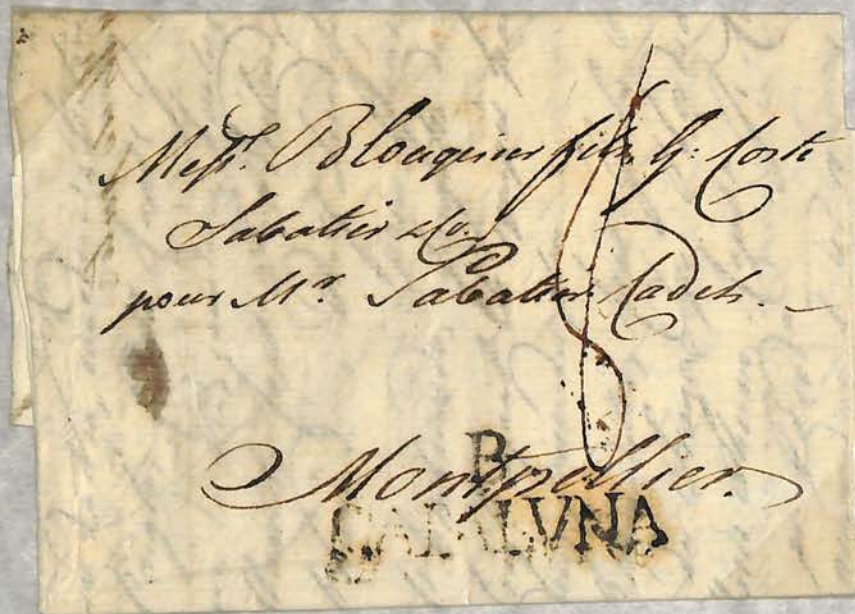 Mess.rs Blouquier fils G: Coste
Sabatier & Co.
pour Mr. Sabatier Cadet. —
8
Montpellier.
B
CATALVNA